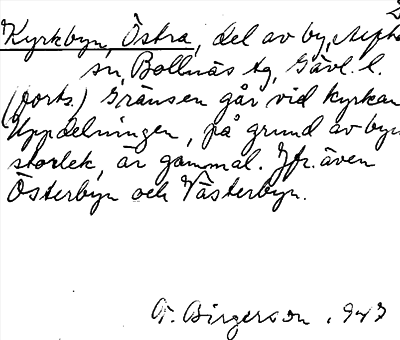 2
Kyrkbyn, Östra, del av by, Alfta
sn, Bollnäs tg, Gävl. l.
(forts.) Gränsen går vid kyrkan
Uppdelningen, på grund av byn
storlek, är gammal. Jfr. även
Österbyn och Västerbyn.
A. Birgerson. 1943